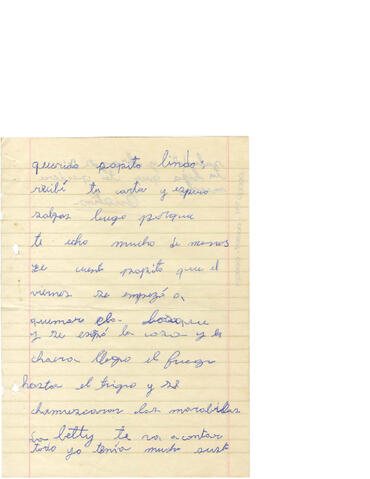 querido papito lindo:
recibí tu carta y espero
salgas luego porque
te echo mucho de menos
te cuento papito que el
viernes se empezó a
quemar el bosque
y se la casa y la
chacra llego el fuego
hasta el trigo y se
chamuscaron las
la betty te va a contar
todo yo tenía mucho sust